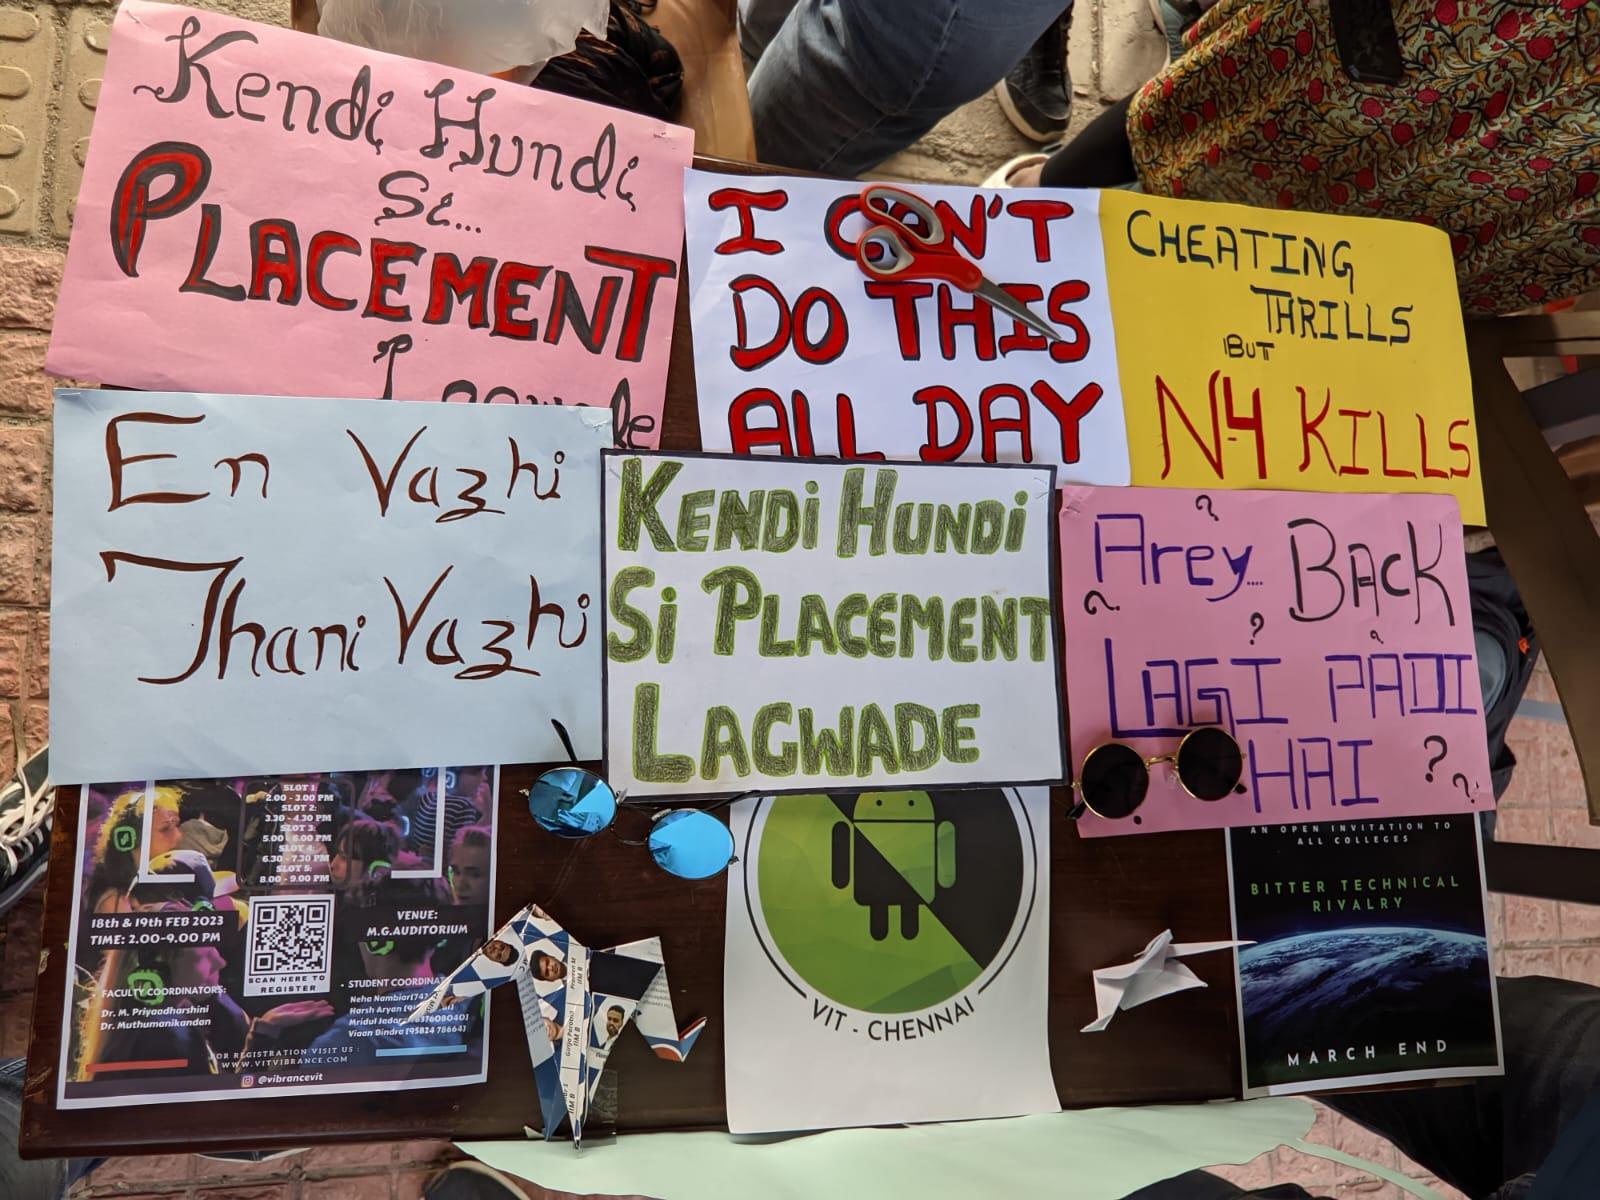 Kendi Hundi
Si...
PLACEMENT
I CAN'T
DO THIS
ALL DAY
CHEATING
THRILLS
BUT
N4 KILLS
En Vazhi
Thani Vazhi
KENDi HUNDi
Si PLACEMENT
LAGWADE
Arey.... BACK
LAGI PADI
HAI ?
SLOT 1:
2.00 - 3.00 PM
SLOT 2:
3.30 - 4.30 PM
SLOT 3:
5.00 - 6.00 PM
SLOT 4:
6.30 - 7.30 PM
SLOT 5:
8.00 - 9.00 PM
18th & 19th FEB 2023
TIME: 2.00-9.00 PM
VENUE:
M.G.AUDITORIUM
SCAN HERE TO
REGISTER
FACULTY COORDINATORS:
Dr. M. Priyaadharshini
Dr. Muthumanikandan
STUDENT COORDINAT
Neha Nambiar
Harsh Aryan
Mridul
Viaan Bindra (95824 78664)
FOR REGISTRATION VISIT US :
WWW.VITVIBRANCE.COM
@vibrancevit
IIM B
IIM B
VIT - CHENNAI
AN OPEN INVITATION TO
ALL COLLEGES
BITTER TECHNICAL
RIVALRY
MARCH END